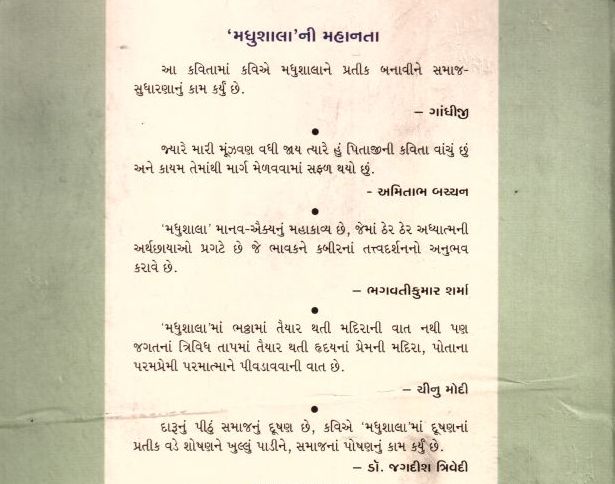 ‘મધુશાલા’ની મહાનતા
આ કવિતામાં કવિએ મધુશાલાને પ્રતીક બનાવીને સમાજ-
સુધારણાનું કામ કર્યું છે.
– ગાંધીજી
જ્યારે મારી મૂંઝવણ વધી જાય ત્યારે હું પિતાજીની કવિતા વાંચું છું
અને કાયમ તેમાંથી માર્ગ મેળવવામાં સફળ થયો છું.
- અમિતાભ બચ્ચન
‘મધુશાલા’ માનવ-ઐક્યનું મહાકાવ્ય છે, જેમાં ઠેર ઠેર અધ્યાત્મની
અર્થછાયાઓ પ્રગટે છે જે ભાવકને કબીરનાં તત્ત્વદર્શનનો અનુભવ
કરાવે છે.
– ભગવતીકુમાર શર્મા
‘મધુશાલા’માં ભઠ્ઠામાં તૈયાર થતી મદિરાની વાત નથી પણ
જગતનાં ત્રિવિધ તાપમાં તૈયાર થતી હૃદયનાં પ્રેમની મદિરા, પોતાના
પરમપ્રેમી પરમાત્માને પીવડાવવાની વાત છે.
– ચીનુ મોદી
દારૂનું પીઠું સમાજનું દૂષણ છે, કવિએ ‘મધુશાલા’માં દૂષણનાં
પ્રતીક વડે શોષણને ખુલ્લું પાડીને, સમાજનાં પોષણનું કામ કર્યું છે.
– ડૉ. જગદીશ ત્રિવેદી